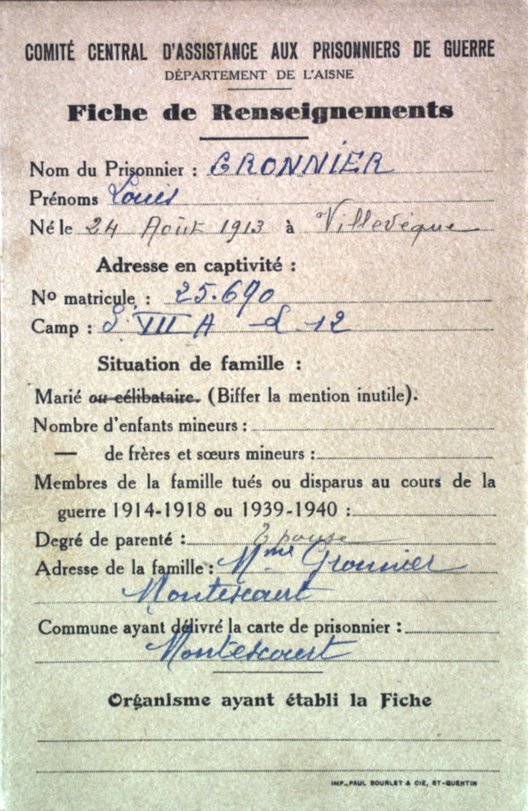 COMITÉ CENTRAL D'ASSISTANCE AUX PRISONNIERS DE GUERRE
DÉPARTEMENT DE L'AISNE
Fiche de Renseignements
Nom du Prisonnier : GRONNIER
Prénoms Louis
Né le 24 Août 1913 à Villevèque
Adresse en captivité :
No matricule : 25.690
Camp : S. VIII A - L 12
Situation de famille :
Marié ou célibataire. (Biffer la mention inutile).
Nombre d'enfants mineurs :
— de frères et sœurs mineurs :
Membres de la famille tués ou disparus au cours de la
guerre 1914-1918 ou 1939-1940 :
Degré de parenté : Epouse
Adresse de la famille : Mme Gronnier
Montescourt
Commune ayant délivré la carte de prisonnier :
Montescourt
Organisme ayant établi la Fiche
IMP. PAUL BOURLET & CIE, ST-QUENTIN